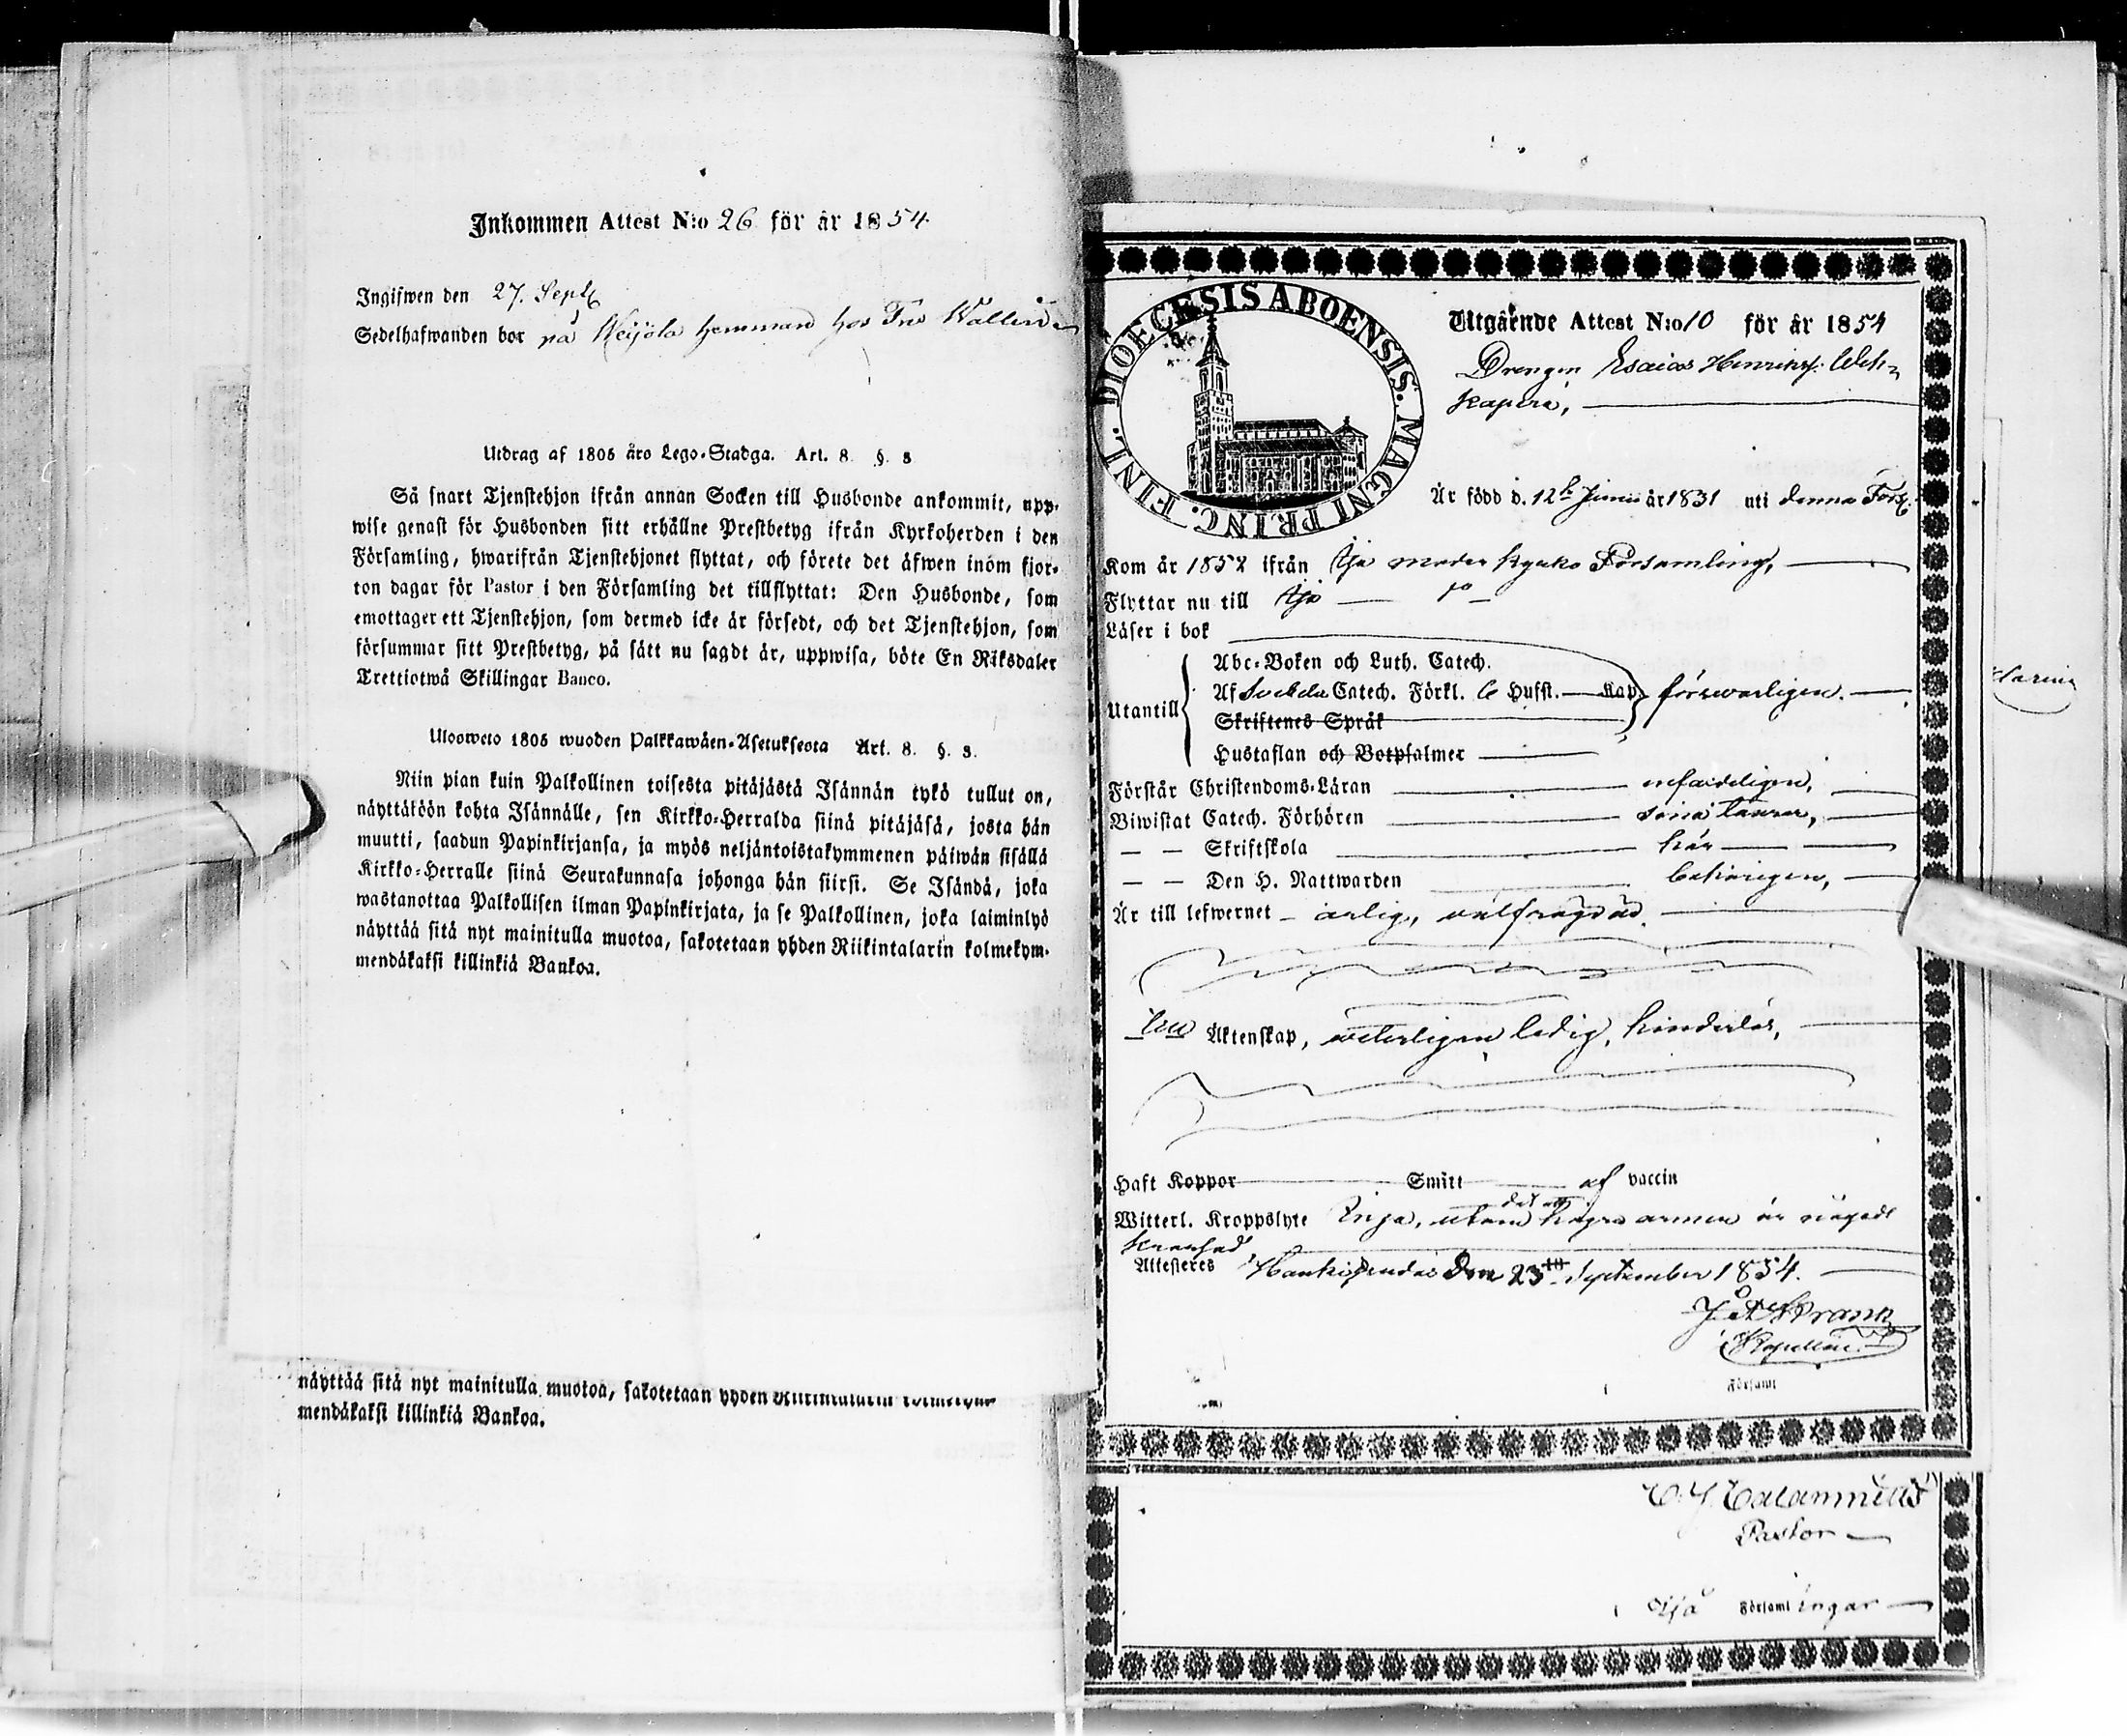 Inkommen Attest N:o 26 för år 1854
Ingifwen den 27. Sept
Sedelhafwanden bor på Weijola hemman hos Fru
Utdrag af 1805 års Lego-Stadga. Art. 8. §. 3
Så snart Tjenstehjon ifrån annan Socken till Husbonde ankommit, upp-
wise genast för Husbonden sitt erhållne Prestbetyg ifrån Kyrkoherden i den
Församling, hwarifrån Tjenstehjonet flyttat, och förete det äfwen inom fjor-
ton dagar för Pastor i den Församling det tillflyttat: Den Husbonde, som
emottager ett Tjenstehjon, som dermed icke är försedt, och det Tjenstehjon, som
försummar sitt Prestbetyg, på sätt nu sagdt är, uppwisa, böte En Riksdaler
Trettiotwå Skillingar Banco.
Ulosweto 1805 wuoden Palkkawäen-Asetuksesta Art. 8. §. 3.
Niin pian kuin Palkollinen toisesta pitäjästä Isännän tykö tullut on,
näyttäköön kohta Isännälle, sen Kirkko-Herralda siinä pitäjäsä, josta hän
muutti, saadun Papinkirjansa, ja myös neljäntoistakymmenen päiwän sisällä
Kirkko-Herralle siinä Seurakunnasa johonga hän siirsi. Se Isändä, joka
wastanottaa Palkollisen ilman Papinkirjata, ja se Palkollinen, joka laiminlyö
näyttää sitä nyt mainitulla muotoa, sakotetaan yhden Riikintalarin kolmekym-
mendäkaksi killinkiä Bankoa.
näyttää sitä nyt mainitulla muotoa, sakotetaan yhden
mendäkaksi killinkiä Bankoa.
DIOECESIS ABOENSIS. MAGNI PRINC. FINL.
Utgående Attest N:o 10 för år 1854
Drengen Esaias Henriks.
Är född d. 12 Junii år 1831 uti denna Förs.
Kom år 1852 ifrån moder kyrko Församling,
Flyttar nu till
Läser i bok
Utantill
Abc-Boken och Luth. Catech.
Af Catech. Förkl. 6 Hufst. Kap. förswarligen.
Skriftenes Språk
Hustaflan och Botpsalmer
Förstår Christendoms-Läran enfaldeligen,
Biwistat Catech. Förhören sina
— — Skriftskola här
— — Den H. Nattwarden behörigen,
Är till lefwernet ärlig, wälfrägdad.
Till Äktenskap, weterligen ledig, hinderlös,
Haft Koppor Smitt af vaccin
Witterl. Kroppslyte Inga, utom det att högra armen är något
Attesteres Den 23 September 1854.
Kapellan
Församl
Pastor
Församlingar